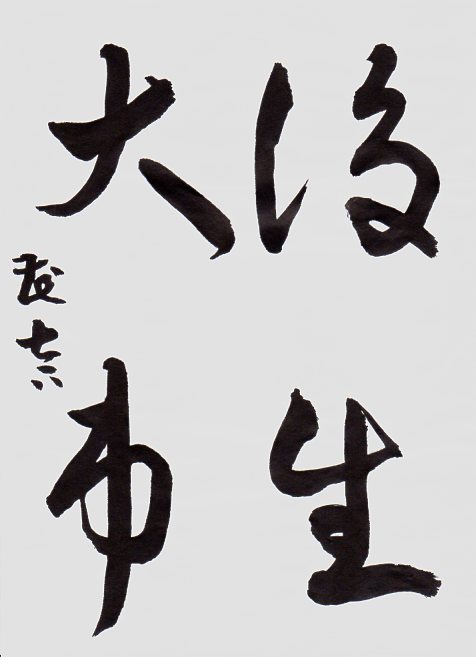 後生
大事